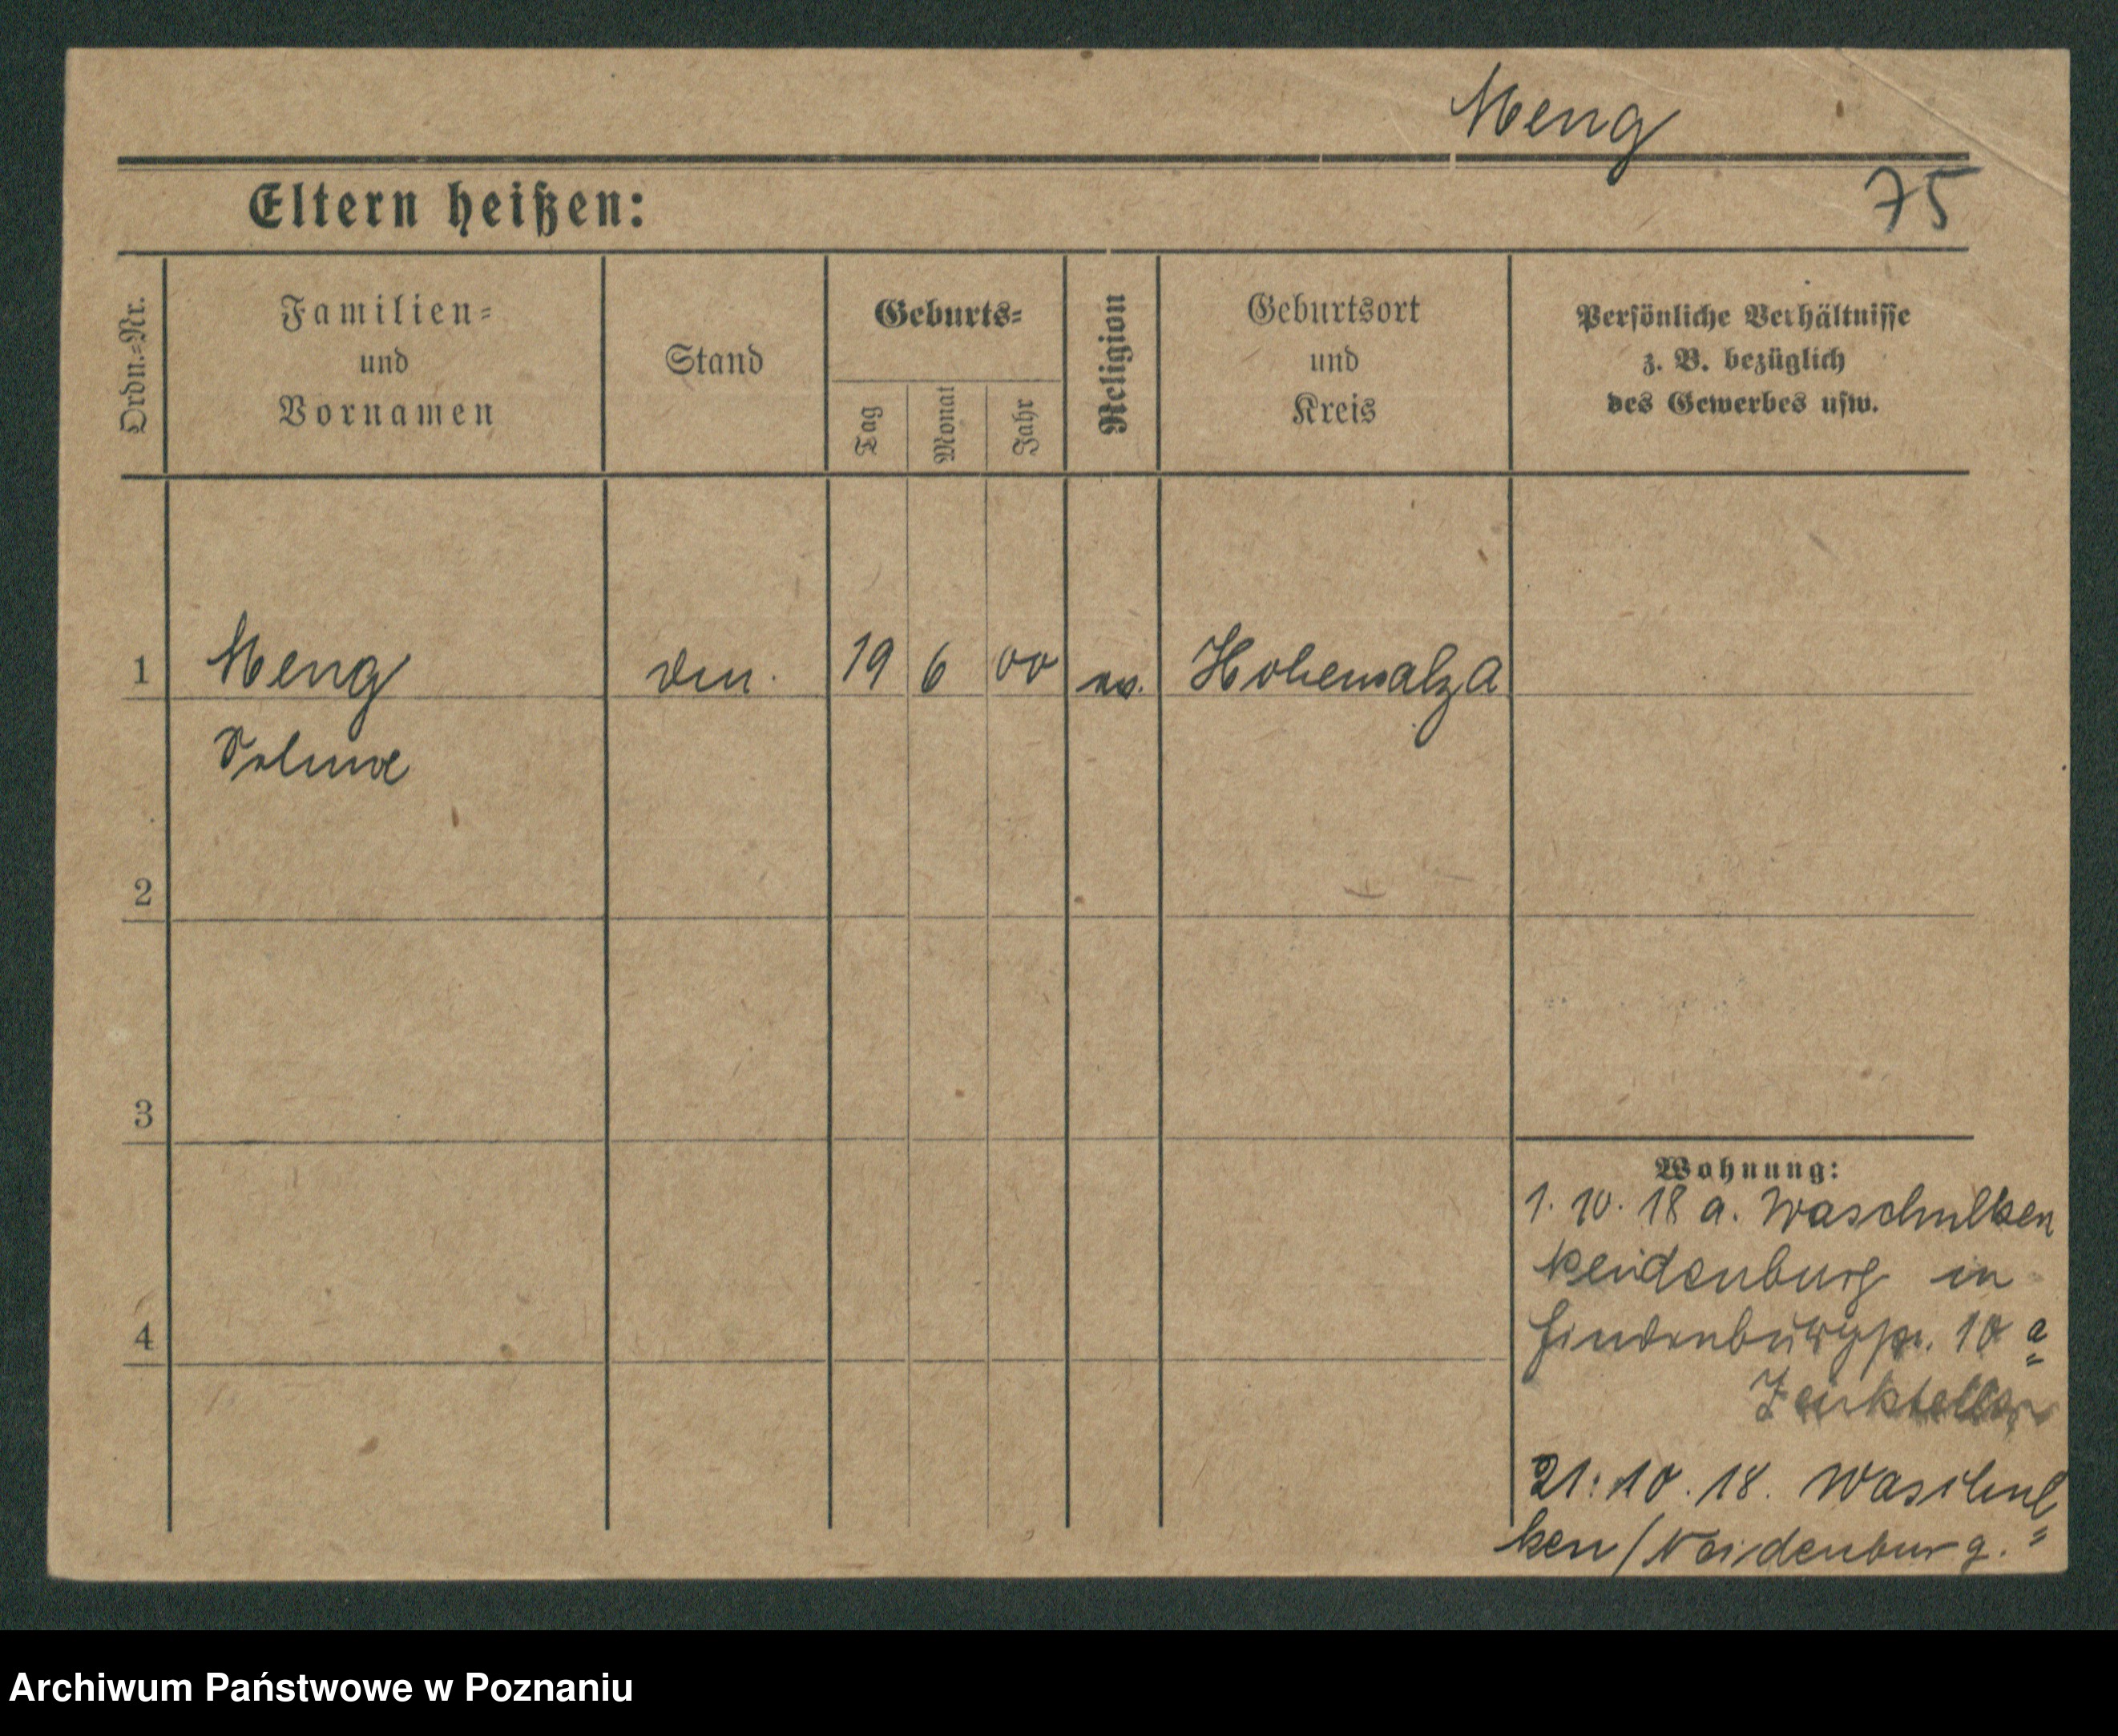 Meng
75
Eltern heißen:
Ordn.-Nr.
Familien-
und
Vornamen
Stand
Geburts-
Tag
Monat
Jahr
Religion
Geburtsort
und
Kreis
Persönliche Verhältnisse
z. B. bezüglich
des Gewerbes usw.
1
Meng
19
6
00
Hohensalza
2
3
4
Wohnung:
1. 10. 18 a. Waschulken
Neidenburg in
10 a
21. 10. 18. Waschul=
ken / Neidenburg.
Archiwum Państwowe w Poznaniu